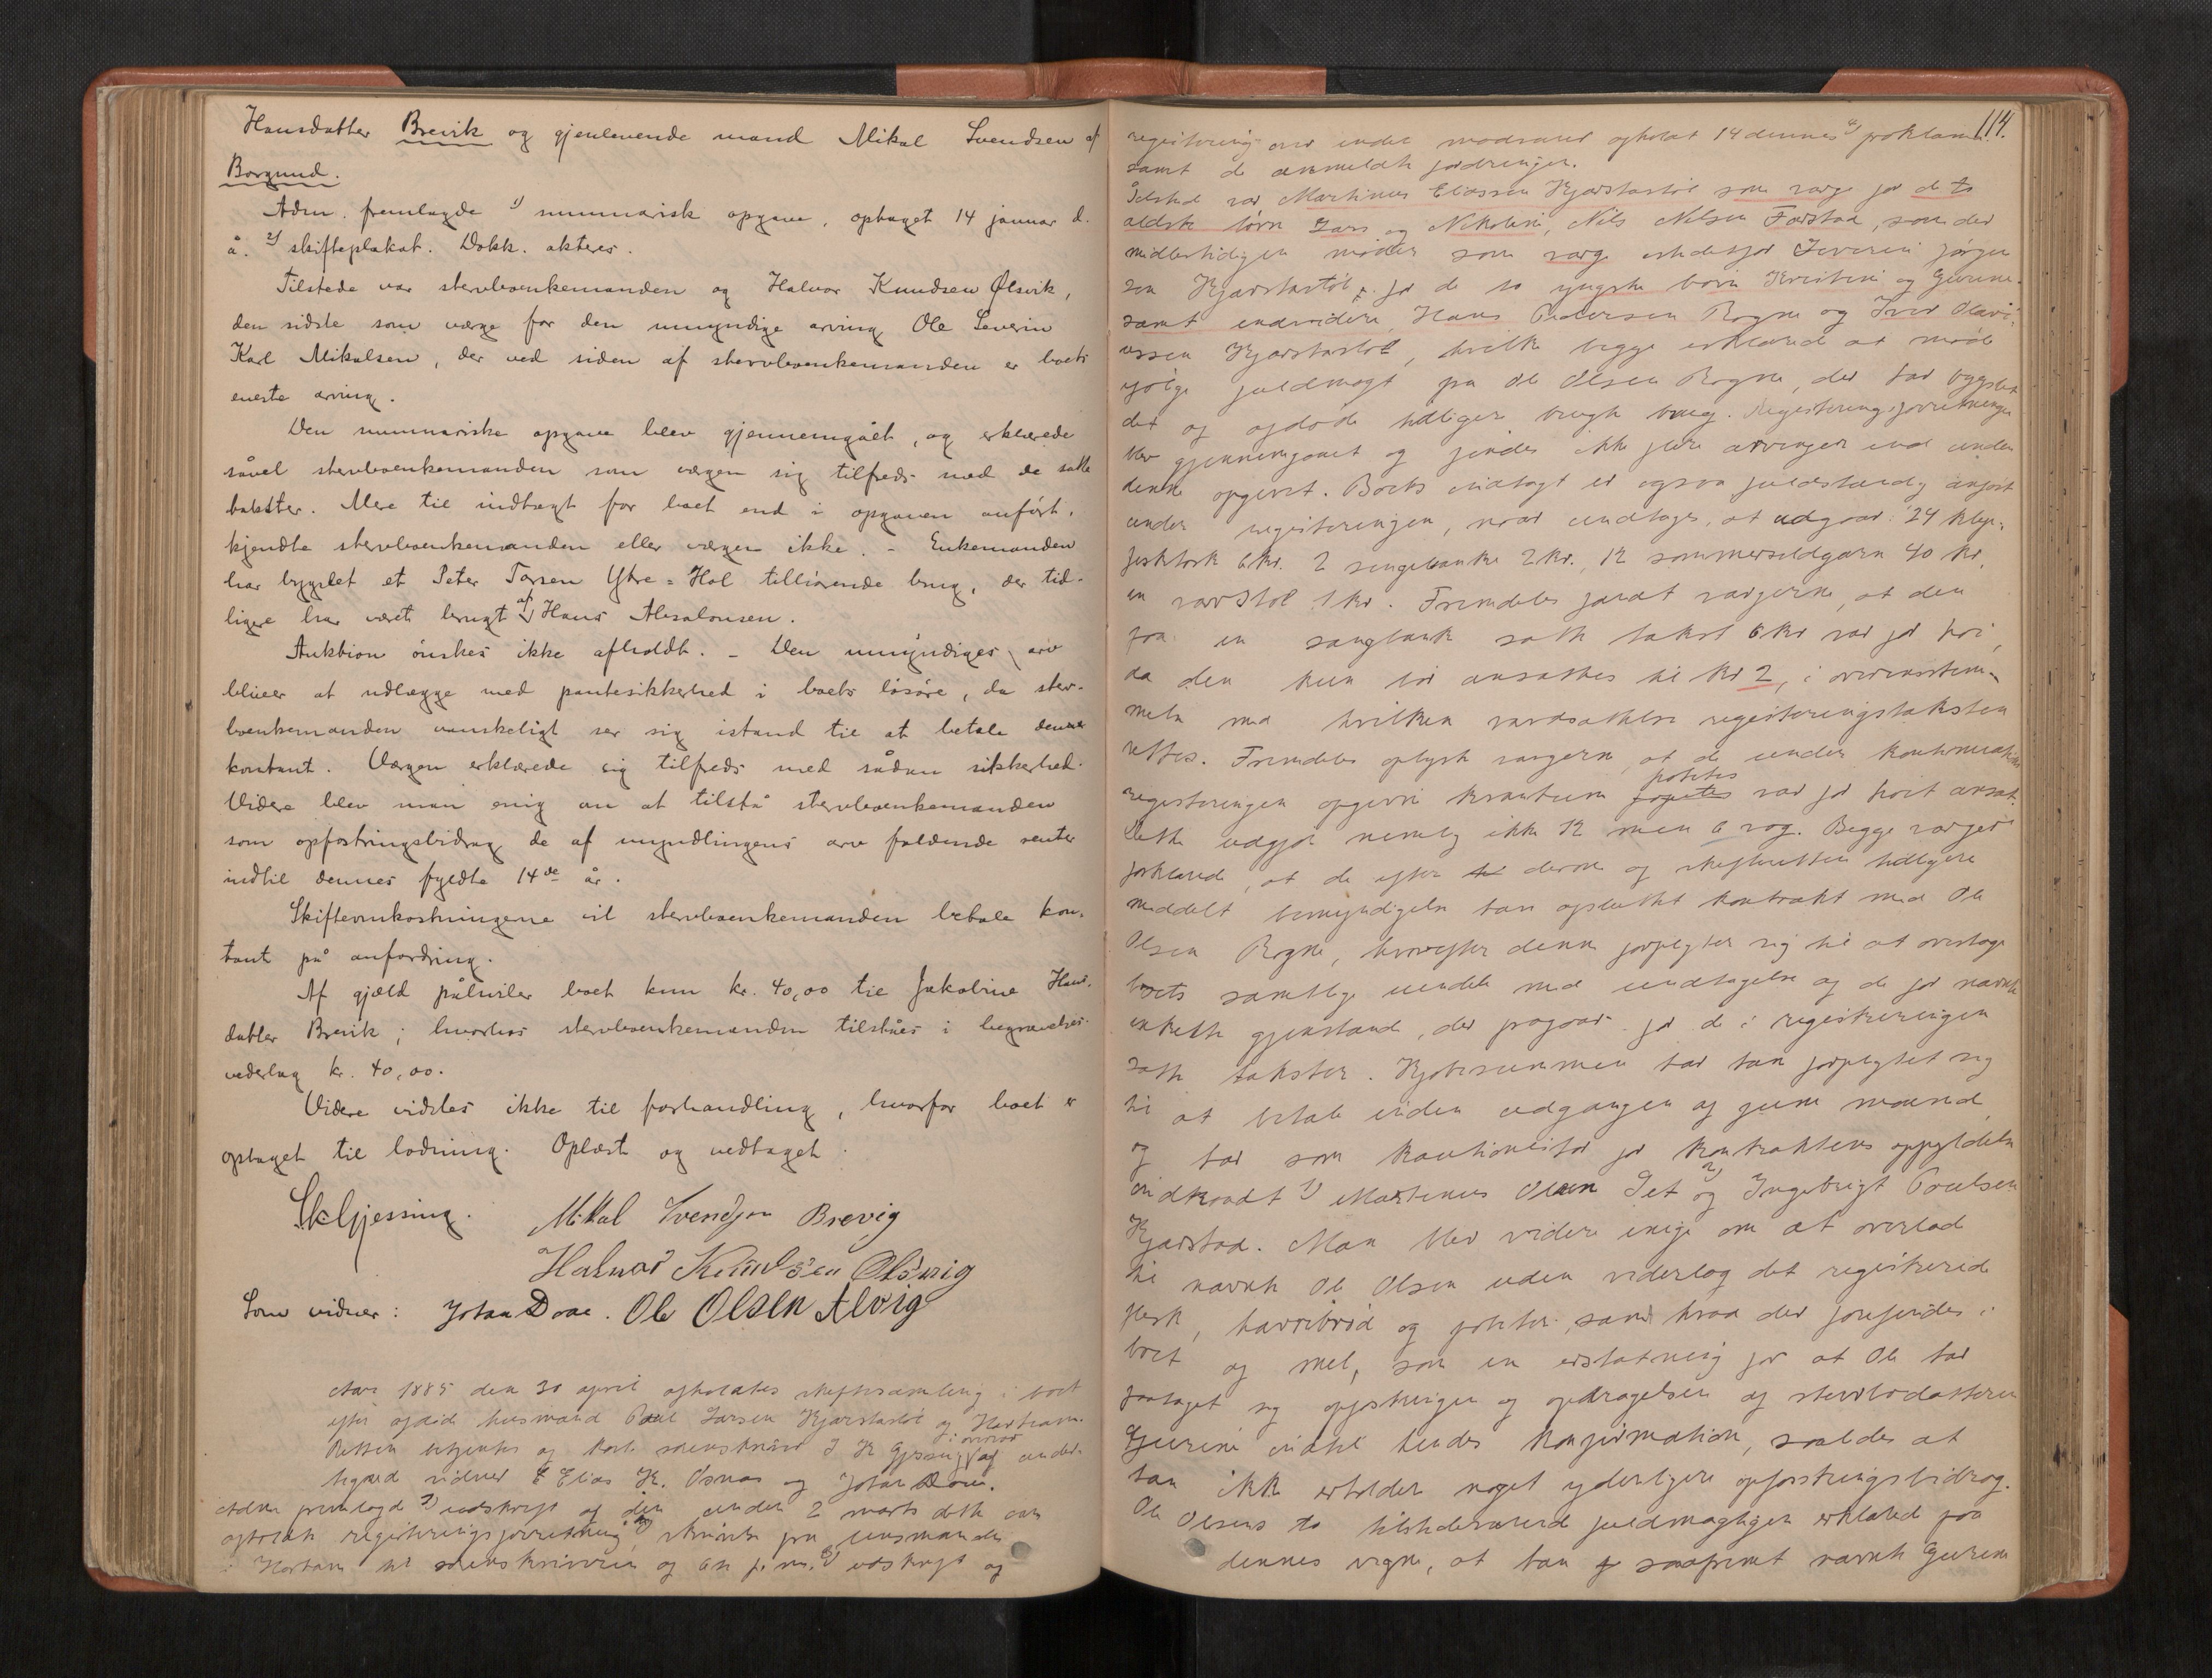 Hansdatter Brevik og gjenlevende mand Mikal Svendsen af
Borgund.
Adm. fremlagde 1) summarisk opgave, optaget 14 januar d.
å. 2) skifteplakat. Dokk. akteres.
Tilstede var stervboenkemanden og Halvor Knudsen Ølsvik,
den sidste som værge for den umyndige arving Ole Severin
Karl Mikalsen, der ved siden af stervboenkemanden er boets
eneste arving.
Den summariske opgave blev gjennemgået, og erklærede
såvel stervboenkemanden som værgen sig tilfreds med de satte
takster. Mere til indtægt for boet end i opgaven anført,
kjendte stervboenkemanden eller værgen ikke. – Enkemanden
har bygslet et Peter Larsen Ytre-Hol tilhørende brug, der tid-
ligere har været brugt af Hans Absalonsen.
Auktion ønskes ikke afholdt. – Den umyndiges arv
bliver at udlægge med pantesikkerhed i boets løsøre, da sterv-
boenkemanden vanskeligt ser sig istand til at betale denne
kontant. Værgen erklærede sig tilfreds med sådan sikkerhed.
Videre blev man enig om at tilstå stervboenkemanden
som opfostringsbidrag de af myndlingens arv faldende renter
indtil dennes fyldte 14de år.
Skifteomkostningene vil stervboenkemanden betale kon-
tant på anfordring.
Af gjæld påhviler boet kun kr. 40,00 til Jakobine Hans-
datter Brevik; hvorhos stervboenkemanden tilståes i begravelses-
vederlag kr. 40,00.
Videre vidstes ikke til forhandling, hvorfor boet er
optaget til lodning. Oplæst og vedtaget.
SkGjessing. Mikal Svendsen Brevig
Halvor Knudsen Ølsvig
Som vidner: Johan Doae. Ole Olsen Alvig
Aar 1885 den 30 april afholdtes skiftesamling i boet
efter afdøde husmand Paul Larsen Kjærstadstøl og Hartram.
Retten betjentes af konst. sorenskriver S K Gjessing i overvær af under-
tegned vidner Elias K. Osnæs og Johan Doae.
Adm fremlagde 1) udskrift af den under 2 marts dette aar
afholdte registreringsforretning, 2) skrivelse fra lensmanden
i Hartam til sorenskriveren af 6te f. m. 3) udskrift af
114.
registrering over endel modvand afholdt 14 dennes 4) proklama
samt de anmeldte fordringer.
Tilstede var Martinus Eliassen Kjærstadstøl som værge for de to
ældste børn Lars og Nikoline, Nils Nilsen Farstad, som der
midlertidigen møder som værge istedetfor Severin Jørgen-
sen Kjærstadstøl for de to yngste børn Kristine og Gurine.
samt endvidere Hans Pedersen Rogne og Iver Olavi-
ussen Kjærstadstøl, hvilke begge erklærede at møde
ifølge fuldmagt fra Ole Olsen Rogne, der har bygslet
det af afdøde tidligere brugte brug. Registreringsforretningen
blev gjennemgaaet og findes ikke flere arvinger end under
denne opgivet. Boets indtægt er ogsaa fuldstændig anført
under registreringen, naar undtages, at udgaar: 24 klip-
fisktorsk 6 kr. 2 sengebænke 2 kr., 12 sommersildgarn 40 kr,
en vævstol 1 kr. Fremdeles fandt værgerne, at den
paa en sengbænk satte takst 6 kr var for høi,
da den kun bør ansættes til kr 2, i overensstem-
melse med hvilken værdsættelse registreringstaksten
rettes. Fremdeles oplyste værgerne, at de under
registreringen opgivne kvantum potetes var for høit ansat.
Dette udgjør nemlig ikke 12 men 6 vog. Begge værger
forklarede, at de efter derom af skifteretten tidligere
meddelt bemyndigelse har opsluttet kontrakt med Ole
Olsen Rogne, hvorefter denne forpligter sig til at overtage
boets samtlige eiendele med undtagelse af de før nævnte
enkelte gjenstande, der fragaar for de i registreringen
satte takster. Kjøbesummen har han forpligtet sig
til at betale inden udgangen af june maaned,
og har som kautionister for kontraktens opfyldelse
indkaldt 1) Martinus Olsen Set 2) og Ingebrigt Poulsen
Kjærstad. Man blev videre enige om at overlade
til nævnte Ole Olsen uden vederlag det registrerede
flesk, havrebrød og poteter, samt hvad der forefindes i
boet af mel, som en erstatning for at Ole har
paataget sig opfostringen og opdragelsen af stervbodatteren
Gurine indtil hendes konfirmation, saaledes at
han ikke erholder noget yderligere opfostringsbidrag.
Ole Olsens to tilstedeværende fuldmægtigen erklærede paa
dennes vegne, at han saafremt nævnte Gurine